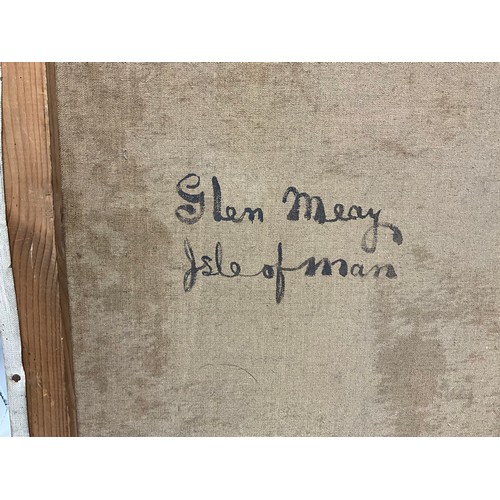 Glen Meay
Isle of Man